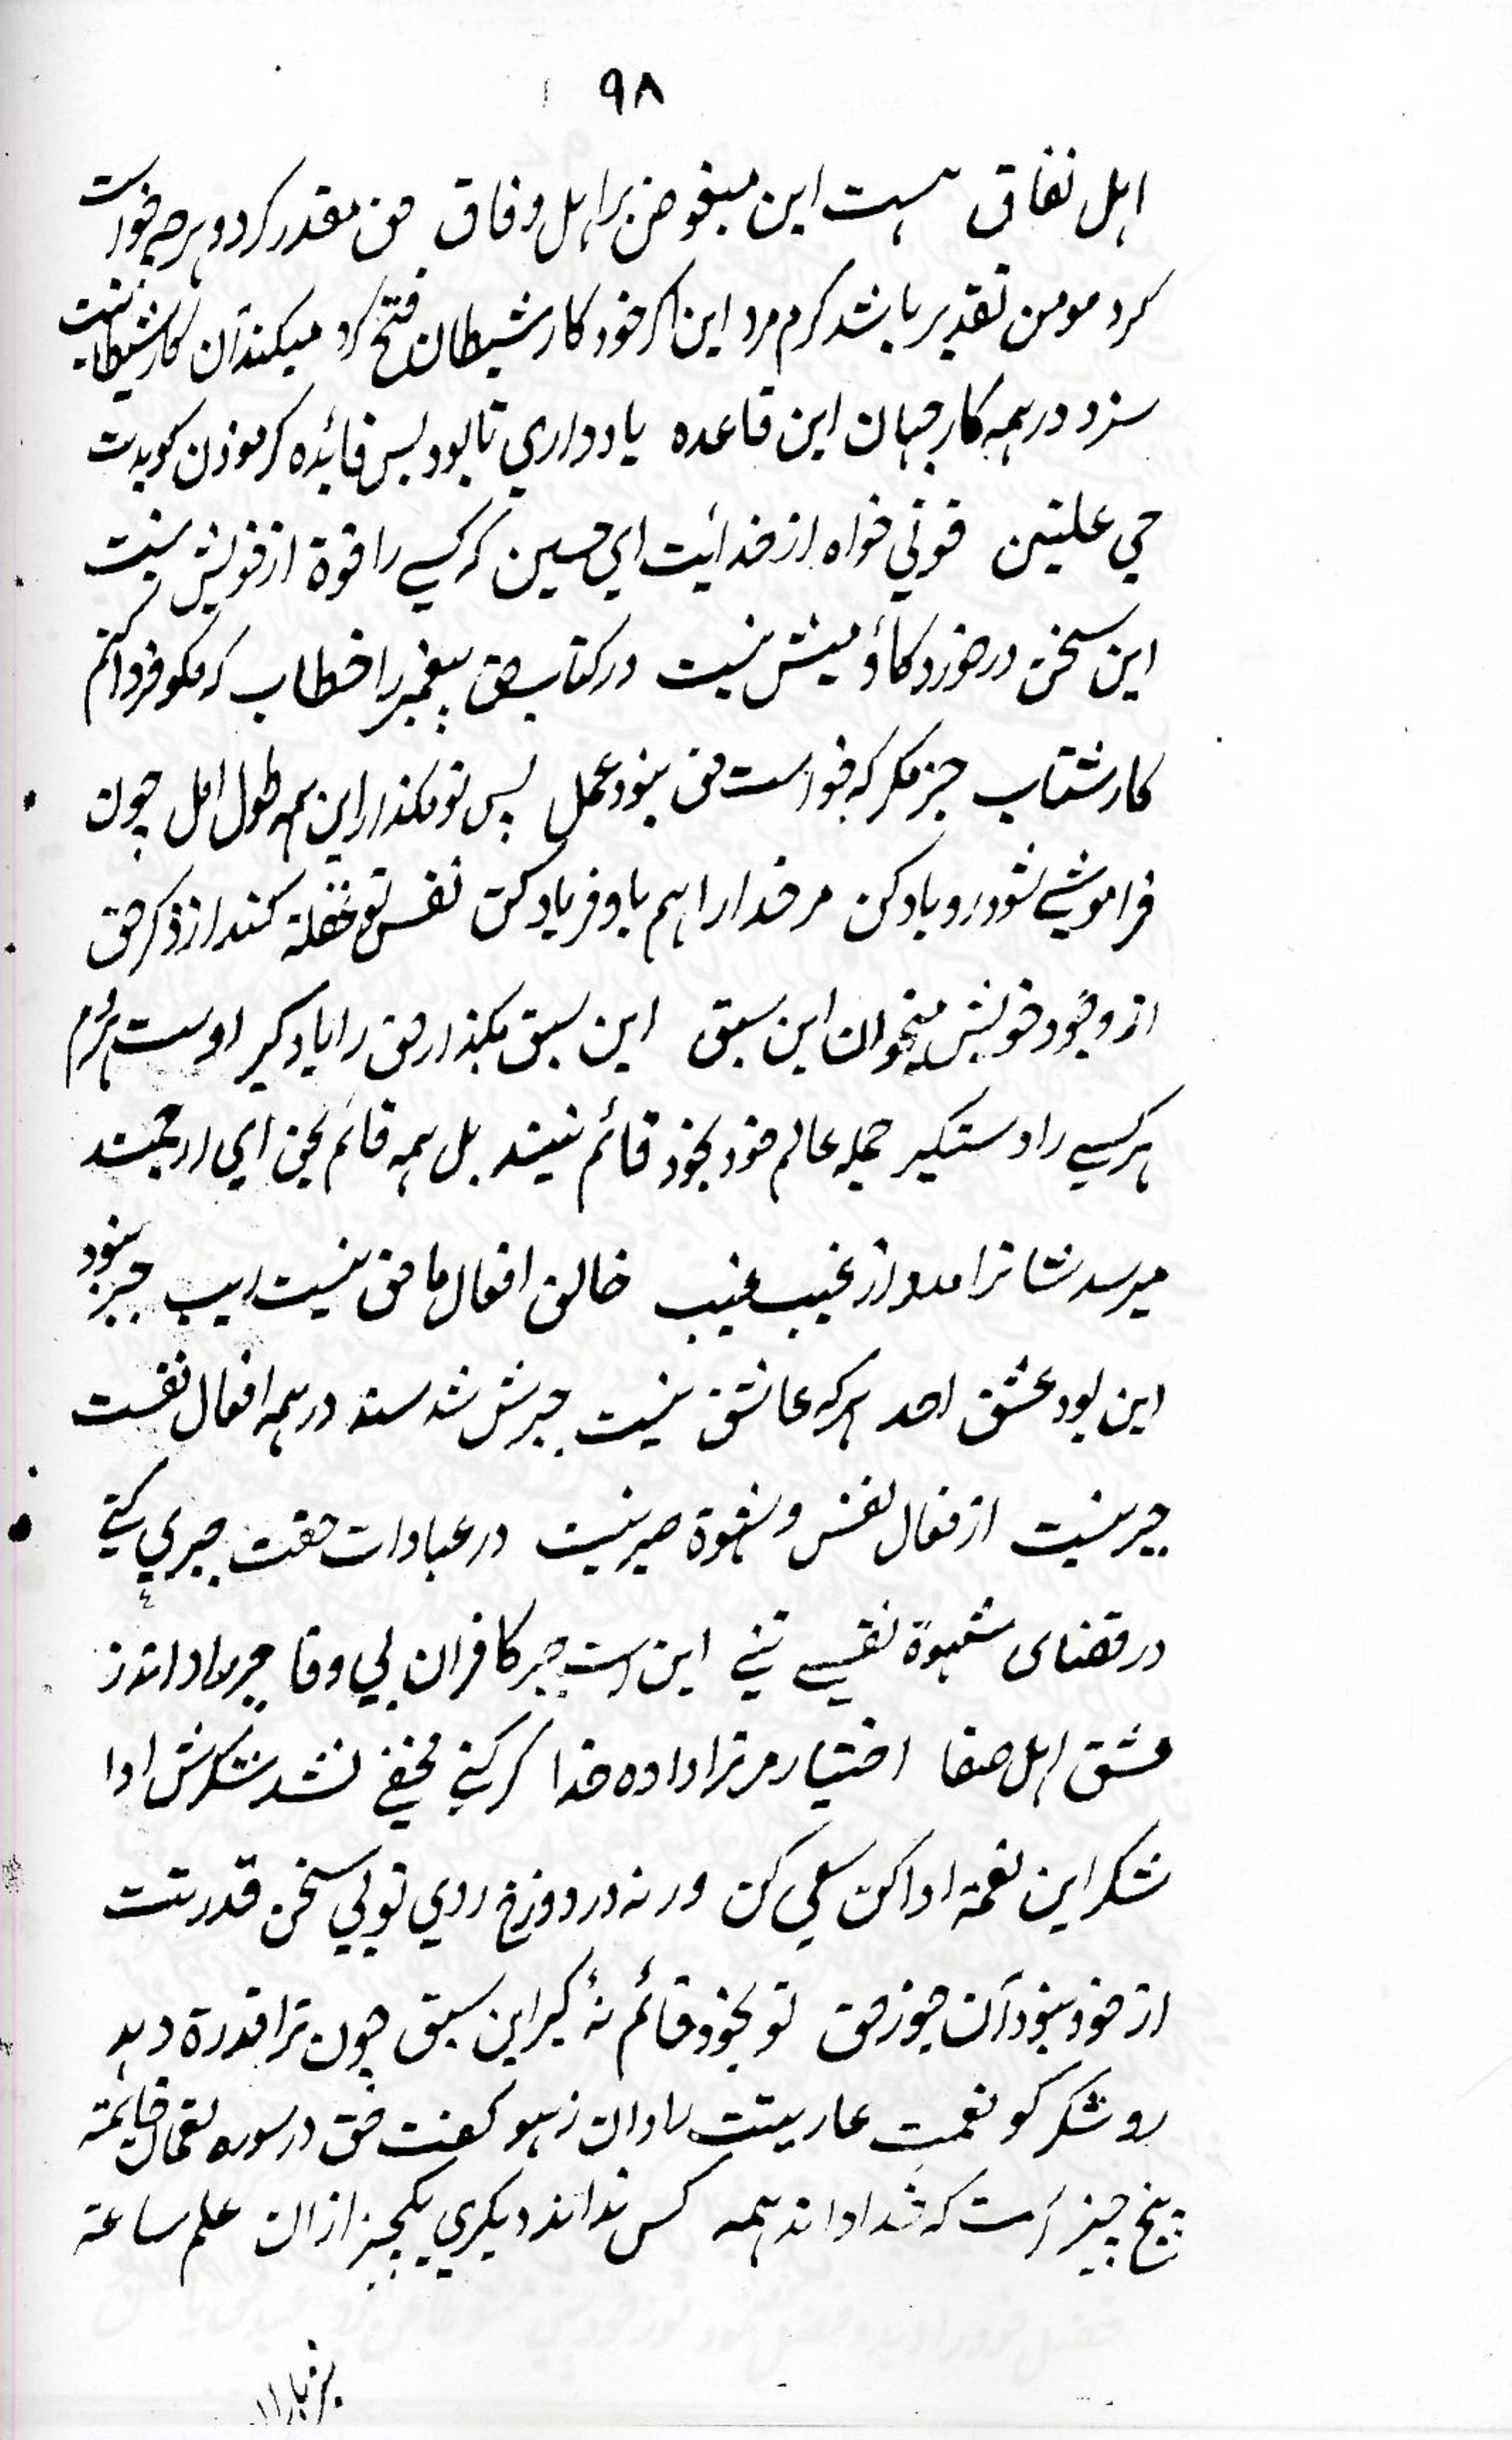 ۹۸
اہل نفاق ہست این مبغوض بر اہل وفاق حق مقدر کرد و ہرچہ خواست
کرد مومن تقدیر باشد کرم مرد این اکر خود کار شیطان فتح کرد میکند آن کار شیطانیت
سزد در ہمہ کار جہان این قاعدہ یاد داری تا بود بس فائدہ کر موذن کویدت
حي علتین قوتي خواہ از خدائیت اي حسین کہ کسے را قوة از خویش نیست
این سخن در خورد کاؤ میش نیست در کتاب حق پیغمبر را خطاب کہ مکو فردا کنم
کار شتاب جز مکر کہ خواست حق بنود عمل پس تو مکذار این ہمہ طول امل چون
فراموشے شود رو یاد کن مر خدا را ہم باو فریاد کن نفس تو غفلة کند از ذکر حق
از وجود خویش میخوان این سبق این سبق بکذار حق را یاد کیر اوست ہردم
ہر کسے را دستکیر جملہ عالم خود بخود قائم نیند بل ہمہ قائم بحق اي ارجمند
میرسد شانرا مدد از غیب غیب خالق افعال ما حق نیست ریب جبر بنود
این بود عشق احد ہر کہ عاشق نیست جبرش شد سند در ہمہ افعال نفست
جبر نیست از فعال نفس و شہوة صبر نیست در عبادات حقت جبري کنے
در قضاي شہوة نفسے تنے این است جبر کافران بي وفا جبر را دانند ز
عشق اہل صفا اختیار مر ترا دادہ خدا کر کنے مخفے نشد شکرش ادا
شکر این نعمة ادا کن سعي کن ور نہ در دوزخ روي تو بي سخن قدرتت
از خود بنود آن جوز حق تو بخود قائم نۂ کیر این سبق چون ترا قدرة دہد
رو شکر کو نعمت عاریتت را دان ز ہو کفت حق در سورہ لقمان خاتمة
پنج چیز است کہ خدا داند ہمہ کس نداند دیکري یکچیز از ان علم ساعة